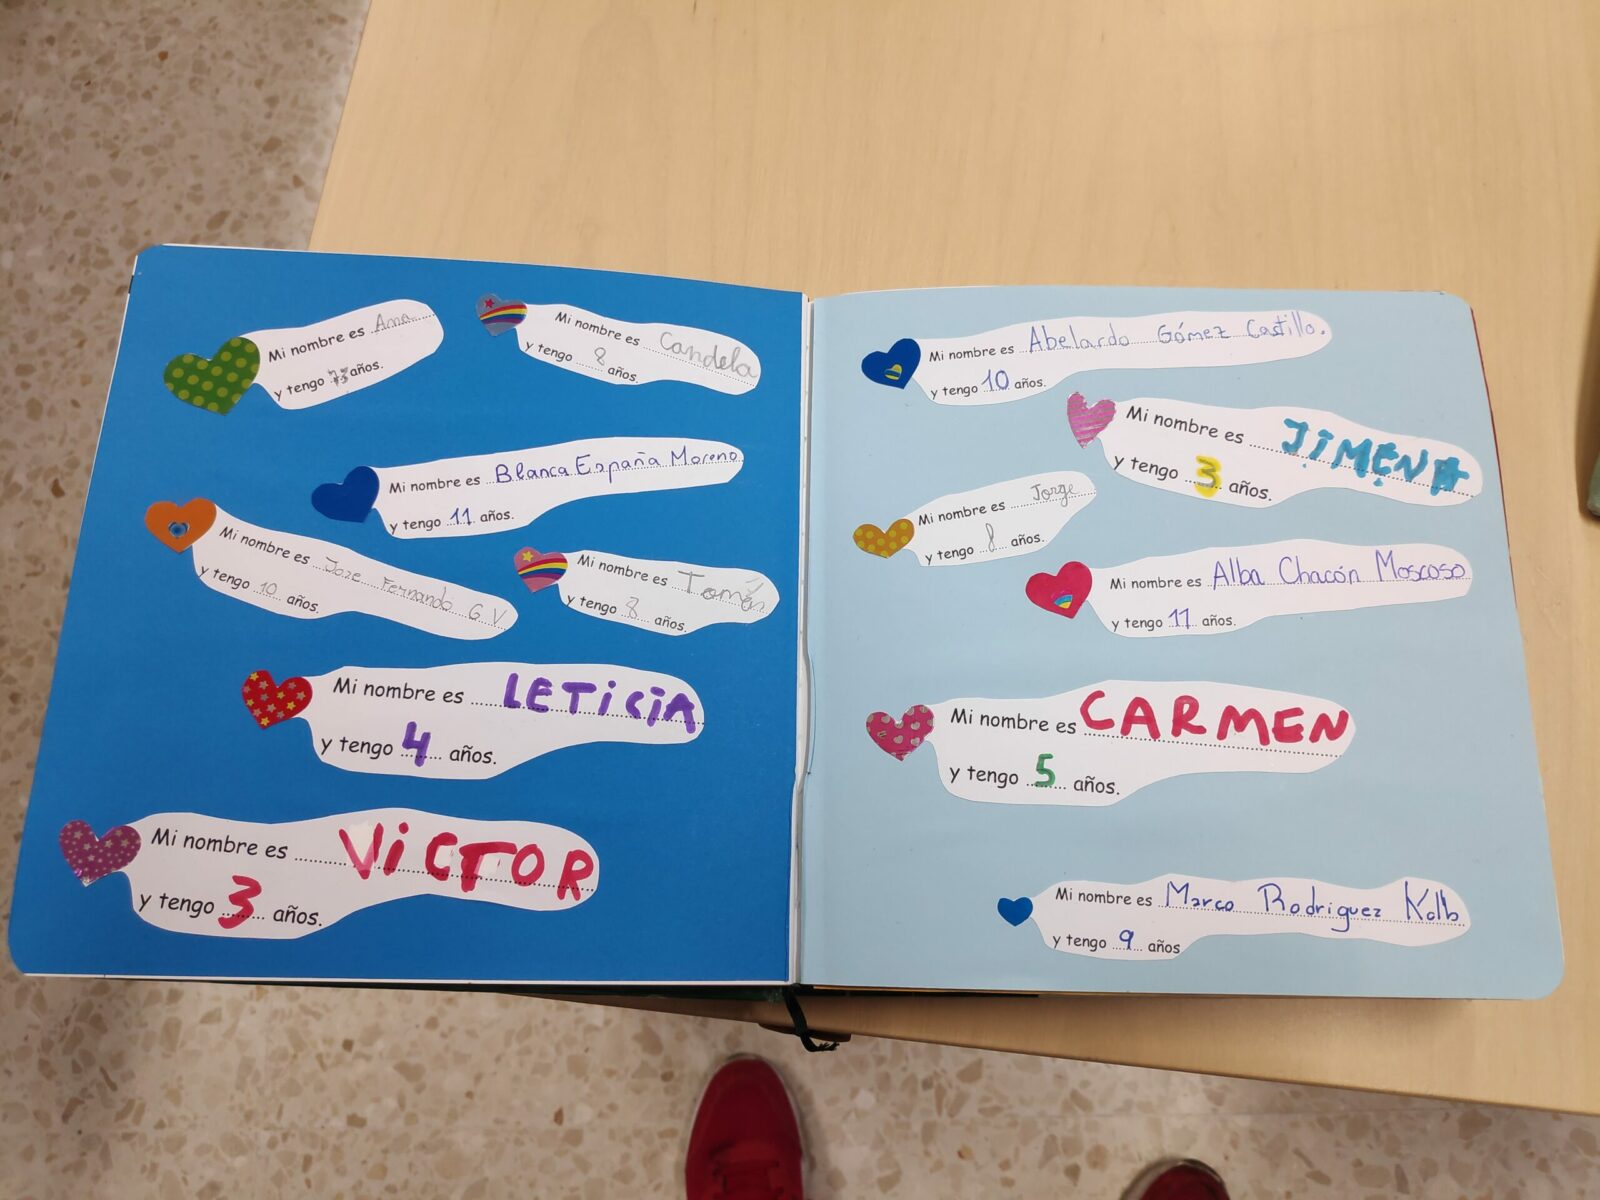 Mi nombre es Ana
y tengo años.
Mi nombre es Candela
y tengo 8 años.
Mi nombre es Blanca España Moreno
y tengo 11 años.
Mi nombre es Jose Fernando G V
y tengo 10 años.
Mi nombre es Tomás
y tengo 8 años.
Mi nombre es LETiCiA
y tengo 4 años.
Mi nombre es ViCTOR
y tengo 3 años.
Mi nombre es Abelardo Gómez Castillo.
y tengo 10 años.
Mi nombre es JiMENA
y tengo 3 años.
Mi nombre es Jorge
y tengo 8 años.
Mi nombre es Alba Chacón Moscoso
y tengo 11 años.
Mi nombre es CARMEN
y tengo 5 años.
Mi nombre es Marco Rodriguez Kolb
y tengo 9 años